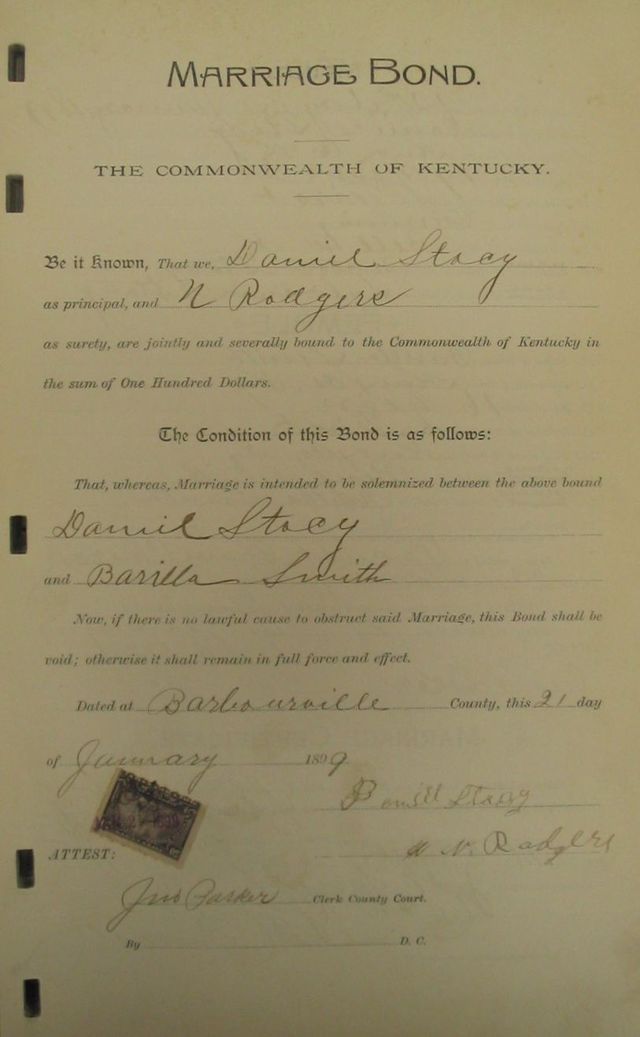 MARRIAGE BOND.
THE COMMONWEALTH OF KENTUCKY.
Be it Known, That we, Daniel Stacy
as principal, and N Rodgers
as surety, are jointly and severally bound to the Commonwealth of Kentucky in
the sum of One Hundred Dollars.
The Condition of this Bond is as follows:
That, whereas, Marriage is intended to be solemnized between the above bound
Daniel Stacy
and Barilla Smith
Now, if there is no lawful cause to obstruct said Marriage, this Bond shall be
void; otherwise it shall remain in full force and effect.
Dated at Barbourville County, this 21 day
of January 1899
Stacy
N. Rodgers
ATTEST:
Jno Parker Clerk County Court.
By D. C.